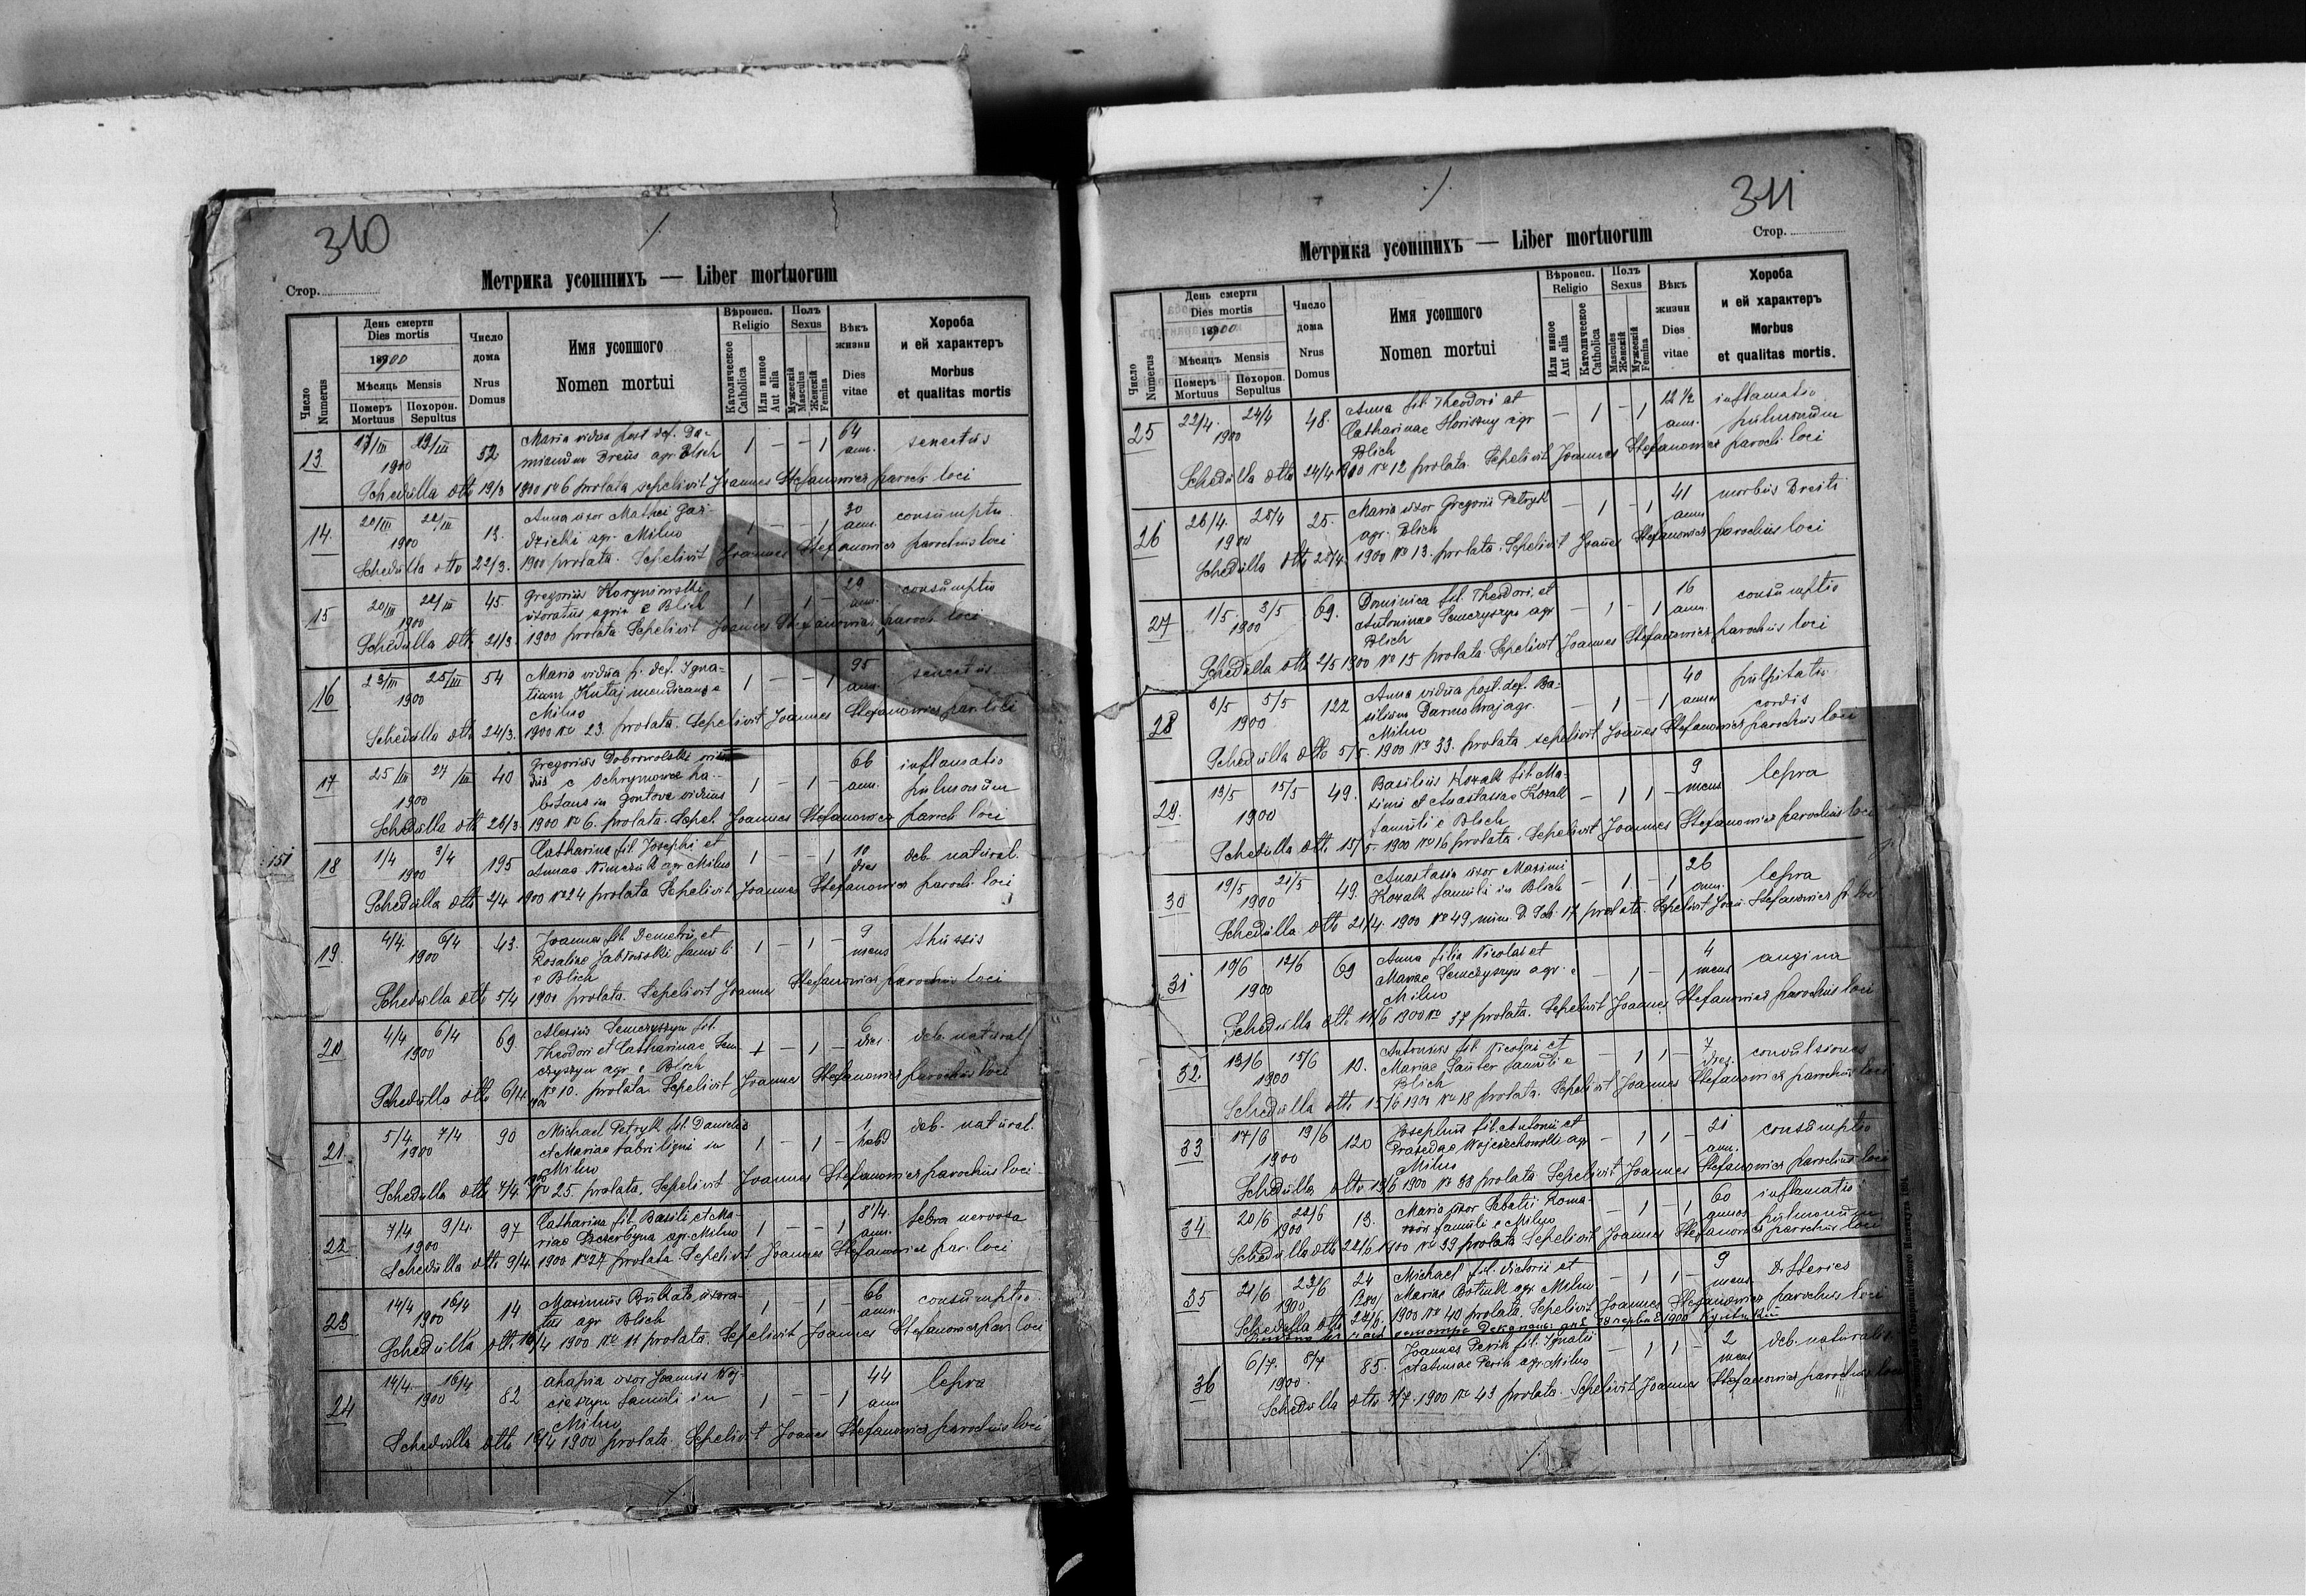 310
Стор.
Метрика усопшихъ — Liber mortuorum
Число
Numerus
День смерти
Dies mortis
1900
Мѣсяць Mensis
Померъ
Mortuus
Похорон.
Sepultus
Число
дома
Nrus
Domus
Имя усопшого
Nomen mortui
Вѣроисп.
Religio
Католическое
Catholica
Или инное
Aut alia
Полъ
Sexus
Мужескій
Masculus
Женскій
Femina
Вѣкъ
жизни
Dies
vitae
Хороба
и ей характеръ
Morbus
et qualitas mortis
13 17/III 19/III 1900 52 Maria vidua post def. Da- 1 – – 1 64 ann. senectus
mianum Dreus agr. Blich
Schedulla dtto 19/3 1900 No 6 prolata sepelivit Joannes Stefanowicz paroch loci
14. 20/III 22/III 1900 13. Anna uxor Mathei Gaz- 1 – – 1 30 ann. consumptio
dzicki agr. Milno
Schedulla dtto 22/3. 1900 prolata. Sepelivit Joannes Stefanowicz parochus loci
15 20/III 22/III 1900 45. Gregorius 1 – 1 – 29 ann. consumptio
uxoratus agric. e Blich
Schedulla dtto 21/3. 1900 prolata Sepelivit Joannes Stefanowicz paroch. loci
16 23/III 25/III 1900 54 Maria vidua p. def. Igna- 1 – – 1 95 ann. senectus
tium Kutaj mendicans e
Milno
Schedulla dtto 24/3. 1900 No 23. prolata. Sepelivit Joannes Stefanowicz par. loci
17 25/III 27/III 1900 40 Gregorius Dobrowolski 1 – 1 – 66 ann. inflamatio
e Ochrymowce ha- pulmonum
bitans in Gontova viduus
Schedulla dtto 26/3. 1900 No 6. prolata. Sepel. Joannes Stefanowicz paroch loci
151
18 1/4 3/4 1900 195 Catharina fil. Josephi et 1 – – 1 10 dies deb. natural.
Annae Nimczuk agr. Milno
Schedulla dtto 2/4 1900 No 24 prolata Sepelivit Joannes Stefanowicz paroch. loci
19. 4/4. 6/4 1900 43. Joannes fil. Demetrii et 1 – 1 – 9 mens thussis
Rosaliae Jabłoński famuli
e Blich
Schedulla dtto 5/4 1900 prolata. Sepelivit Joannes Stefanowicz parochus loci
20 4/4 6/4 1900 69 Alexius Semczyszyn fil. 1 – 1 – 6 dies. deb. natural
Theodori et Catharinae Sem-
czyszyn agr. e Blich
Schedulla dtto 6/4. 1900 No 10. prolata. Sepelivit Joannes Stefanowicz parochus loci
21. 5/4 7/4 1900 90 Michael Petryk fil. Danielis 1 – 1 – 1 hebd deb. natural.
et Mariae fabri ligni in
Milno
Schedulla dtto 7/4. 1900 No 25. prolata. Sepelivit Joannes Stefanowicz parochus loci
22 7/4 9/4. 1900 97 Catharina fil. Basilii et Ma- 1 – – 1 8 1/4. ann. febra nervosa
riae agr. Milno
Schedulla dtto 9/4. 1900 No 27 prolata. Sepelivit Joannes Stefanowicz par. loci
23 14/4 16/4 1900 14 Maximus Bukata uxora- 1 – 1 – 66 ann. consumptio
tus agr Blich
Schedulla dtto 16/4 1900 No 11 prolata. Sepelivit Joannes Stefanowicz par. loci
24 14/4. 16/4. 1900 82 Ahapia uxor Joannis Woj- 1 – – 1 44 ann lepra
cieszyn famuli in
Milno
Schedulla dtto 16/4 1900 prolata. Sepelivit Joannes Stefanowicz parochus loci
311
Стор.
Метрика усопшихъ — Liber mortuorum
Число
Numerus
День смерти
Dies mortis
1900
Мѣсяць Mensis
Померъ
Mortuus
Похорон.
Sepultus
Число
дома
Nrus
Domus
Имя усопшого
Nomen mortui
Вѣроисп.
Religio
Или инное
Aut alia
Католическое
Catholica
Полъ
Sexus
Mascules
Женскій
Мужескій
Femina
Вѣкъ
жизни
Dies
vitae
Хороба
и ей характеръ
Morbus
et qualitas mortis.
25 22/4. 24/4 1900 48. Anna fil. Theodori et – 1 – 1 12 1/2 ann. inflamatio
Catharinae Horiszny agr pulmonum
Blich
Schedulla dtto 24/4 1900 No 12 prolata. Sepelivit Joannes Stefanowicz paroch. loci
26 26/4. 28/4 1900 25. Maria uxor Gregorii Petryk – 1 – 1 41 ann morbus Breiti
agr. Blich
Schedulla dtto 28/4. 1900 No 13. prolata. Sepelivit Joannes Stefanowicz parochus loci
27 1/5 3/5 1900 69. Dominica fil. Theodori et – 1 – 1 16 ann. consumptio
Antoninae Semczyszyn agr
Blich
Schedulla dtto 2/5 1900 No 15 prolata. Sepelivit Joannes Stefanowicz parochus loci
28 3/5 5/5 1900 122 Anna vidua post. def. Ba- – 1 – 1 40 annos pulpitatio
silium agr. cordis
Milno
Schedulla dtto 5/5. 1900 No 33. prolata sepelivit Joannes Stefanowicz parochus loci
29. 13/5 15/5 1900 49. Basilius Kozak fil. Ma- – 1 1 – 9 mens lepra
ximi et Anastasiae Kozak
famuli e Blich
Schedulla dtto 15/5. 1900 No 16 prolata. Sepelivit Joannes Stefanowicz parochus loci
30 19/5 21/5 1900 49. Anastasia uxor Maximi – 1 – 1 26 ann. lepra
Kozak famuli in Blich
Schedulla dtto 21/4. 1900 No 49 17 prolata. Sepelivit Joan. Stefanowicz p. loci
31 10/6 12/6 1900 69 Anna filia Nicolai et – 1 – 1 4 mens angina
Mariae Semczyszyn agr. e
Milno
Schedulla dtto 11/6 1900 No 37 prolata. Sepelivit Joannes Stefanowicz parochus loci
32. 13/6 15/6 1900 10. Antonius fil. Nicolai et – 1 1 – 7 dies. convulsiones
Mariae Sauter famuli e
Blich
Schedulla dtto 15/6 1900 No 18 prolata. Sepelivit Joannes Stefanowicz parochus loci
33 17/6 19/6 1900 120 Josephus fil. Antonii et – 1 1 – 21 ann. consumptio
Praxedae Wojciechowski agr
Milno
Schedulla dtto 19/6 1900 No 38 prolata. Sepelivit Joannes Stefanowicz parochus loci
34 20/6 22/6 1900 13. Maria uxor Sabatii Roma- – 1 – 1 60 annos inflamatio
famuli e Milno pulmonum
Schedulla dtto 22/6 1900 No 39 prolata Sepelivit Joannes Stefanowicz parochus loci
35 21/6 23/6 1900 24 Michael fil. Victorii et – 1 1 – 9 mens Difteries
Mariae agr. Milno
Schedulla dtto 22/6. 1900 No 40 prolata. Sepelivit Joannes Stefanowicz parochus loci
1900
36 6/7. 8/7 1900. 85. Joannes Perih fil. Ignatii – 1 1 – 2 mens deb. naturalis
Perih agr. Milno
Schedulla dtto 7/7. 1900 No 43 prolata. Sepelivit Joannes Stefanowicz parochus loci